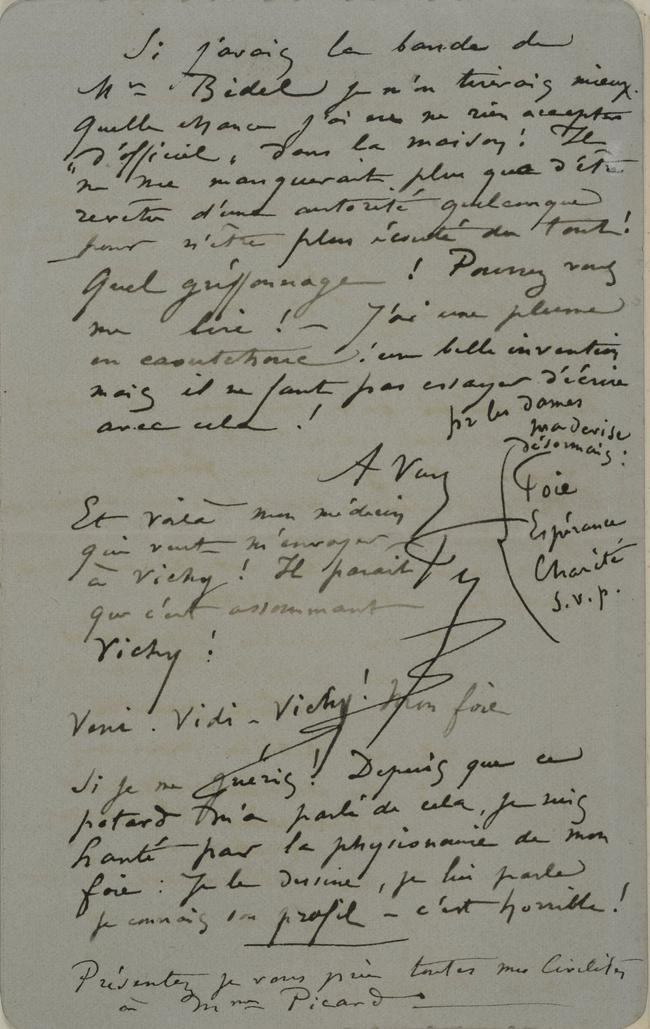 Si j'avais la bande de
Mr Bidel je n'en tirerais mieux.
Quelle chance j'ai eue ne rien accepter
"d'officiel" dans la maison! Il
ne me manquerait plus que d'être
revêtu d'une autorité quelconque
pour n'être plus écouté du tout!
Quel griffonnage! Pourrez vous
me lire! – J'ai une plume
en caoutchouc! une belle invention
mais il ne faut pas essayer d'écrire
avec cela!
A Vous
pr les dames
ma devise
désormais:
Foie
Espérance
Charité
s.v.p.
Et voilà mon médecin
qui veut m'envoyer
à Vichy! Il parait
que c'est assommant
Vichy!
Veni. Vidi – Vichy! Mon foie
Si je me guéris! Depuis que ce
potard m'a parlé de cela, je suis
hanté par la physionomie de mon
foie: Je le dessine, je lui parle
je connais son profil – c'est horrible!
Présentez je vous prie toutes mes Civilités
à Mme Picard